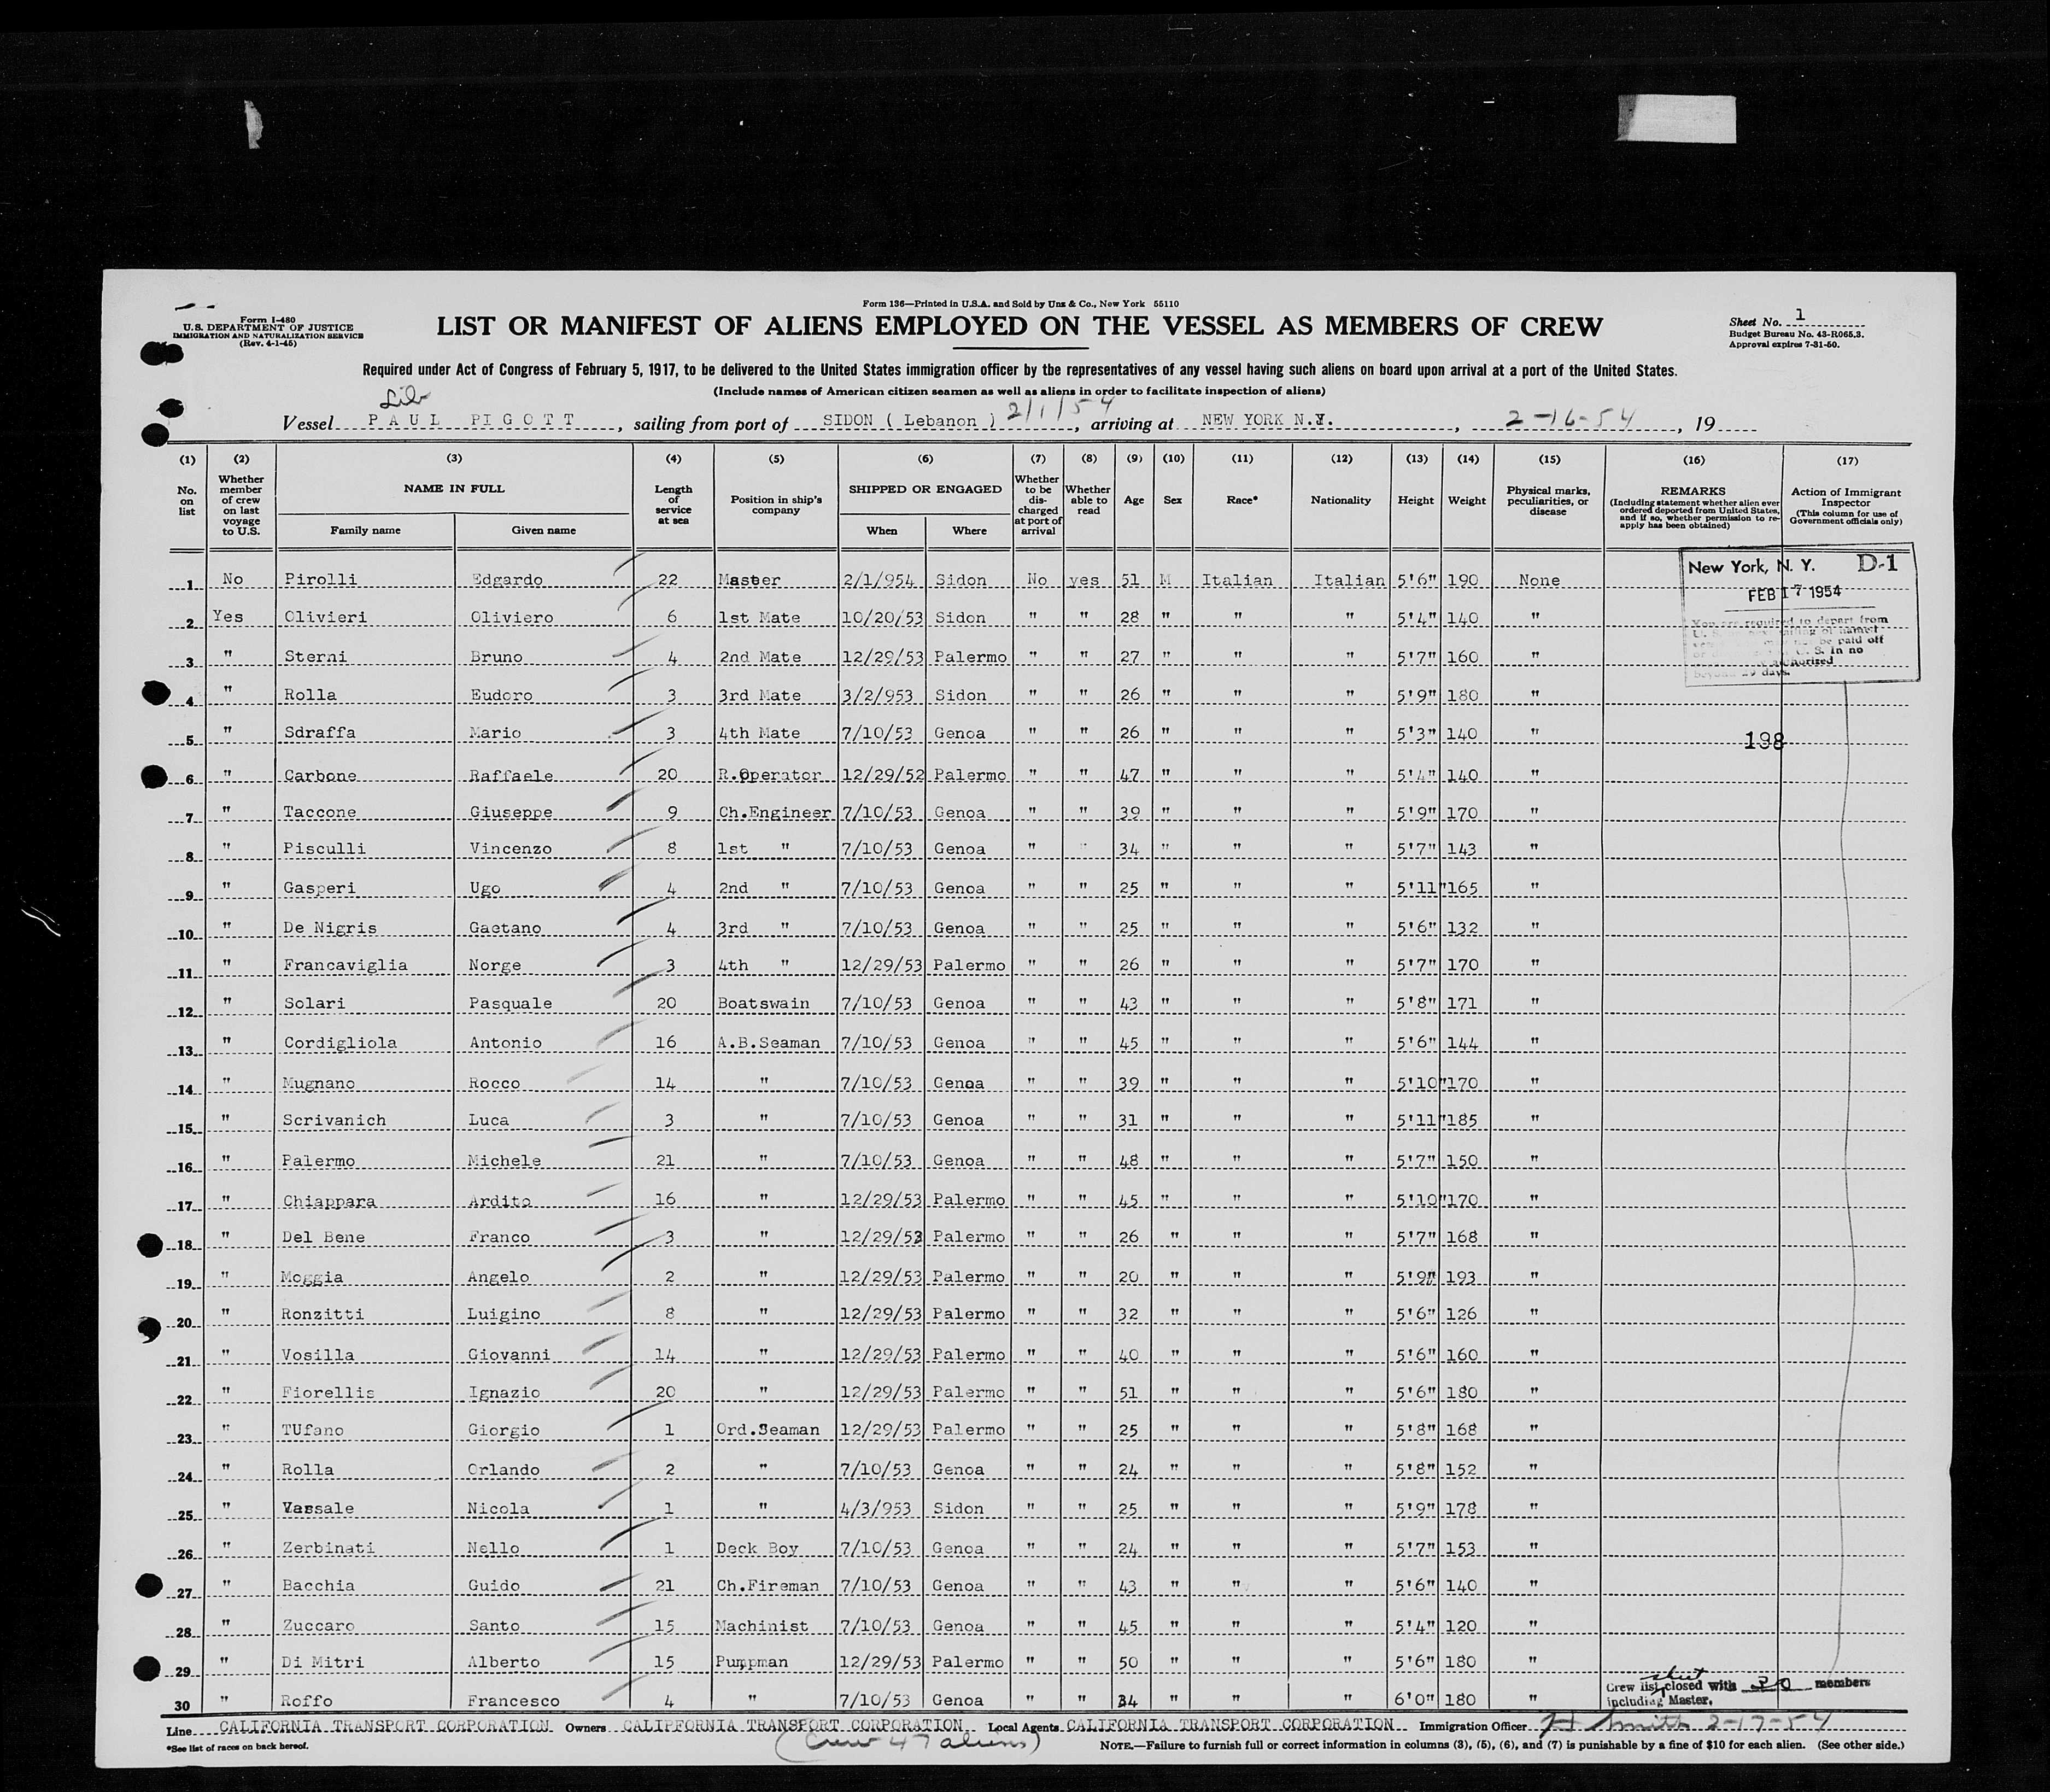 Form 136—Printed in U.S.A. and Sold by Unz & Co., New York 55110
Form I-480
U.S. DEPARTMENT OF JUSTICE
IMMIGRATION AND NATURALIZATION SERVICE
(Rev. 4-1-45)
LIST OR MANIFEST OF ALIENS EMPLOYED ON THE VESSEL AS MEMBERS OF CREW
Sheet No. 1
Budget Bureau No. 43-R065.3.
Approval expires 7-31-50.
Required under Act of Congress of February 5, 1917, to be delivered to the United States immigration officer by the representatives of any vessel having such aliens on board upon arrival at a port of the United States.
(Include names of American citizen seamen as well as aliens in order to facilitate inspection of aliens)
Lib
Vessel PAUL PIGOTT, sailing from port of SIDON ( Lebanon ) 2/1/54, arriving at NEW YORK N.Y., 2-16-54, 19
(1) (2) (3) (4) (5) (6) (7) (8) (9) (10) (11) (12) (13) (14) (15) (16) (17)
No. on list Whether member of crew on last voyage to U.S. NAME IN FULL Family name Given name Length of service at sea Position in ship's company SHIPPED OR ENGAGED When Where Whether to be discharged at port of arrival Whether able to read Age Sex Race* Nationality Height Weight Physical marks, peculiarities, or disease REMARKS (Including statement whether alien ever ordered deported from United States, and if so, whether permission to reapply has been obtained) Action of Immigrant Inspector (This column for use of Government officials only)
1 No Pirolli Edgardo 22 Master 2/1/954 Sidon No yes 51 M Italian Italian 5'6" 190 None
2 Yes Olivieri Oliviero 6 1st Mate 10/20/53 Sidon " " 28 " " " 5'4" 140 "
3 " Sterni Bruno 4 2nd Mate 12/29/53 Palermo " " 27 " " " 5'7" 160 "
4 " Rolla Eudoro 3 3rd Mate 3/2/953 Sidon " " 26 " " " 5'9" 180 "
5 " Sdraffa Mario 3 4th Mate 7/10/53 Genoa " " 26 " " " 5'3" 140 "
6 " Carbone Raffaele 20 R.Operator 12/29/52 Palermo " " 47 " " " 5'4" 140 "
7 " Taccone Giuseppe 9 Ch.Engineer 7/10/53 Genoa " " 39 " " " 5'9" 170 "
8 " Pisculli Vincenzo 8 1st " 7/10/53 Genoa " " 34 " " " 5'7" 143 "
9 " Gasperi Ugo 4 2nd " 7/10/53 Genoa " " 25 " " " 5'11" 165 "
10 " De Nigris Gaetano 4 3rd " 7/10/53 Genoa " " 25 " " " 5'6" 132 "
11 " Francaviglia Norge 3 4th " 12/29/53 Palermo " " 26 " " " 5'7" 170 "
12 " Solari Pasquale 20 Boatswain 7/10/53 Genoa " " 43 " " " 5'8" 171 "
13 " Cordigliola Antonio 16 A.B.Seaman 7/10/53 Genoa " " 45 " " " 5'6" 144 "
14 " Mugnano Rocco 14 " 7/10/53 Genoa " " 39 " " " 5'10" 170 "
15 " Scrivanich Luca 3 " 7/10/53 Genoa " " 31 " " " 5'11" 185 "
16 " Palermo Michele 21 " 7/10/53 Genoa " " 48 " " " 5'7" 150 "
17 " Chiappara Ardito 16 " 12/29/53 Palermo " " 45 " " " 5'10" 170 "
18 " Del Bene Franco 3 " 12/29/53 Palermo " " 26 " " " 5'7" 168 "
19 " Moggia Angelo 2 " 12/29/53 Palermo " " 20 " " " 5'9" 193 "
20 " Ronzitti Luigino 8 " 12/29/53 Palermo " " 32 " " " 5'6" 126 "
21 " Vosilla Giovanni 14 " 12/29/53 Palermo " " 40 " " " 5'6" 160 "
22 " Fiorellis Ignazio 20 " 12/29/53 Palermo " " 51 " " " 5'6" 180 "
23 " TUfano Giorgio 1 Ord.Seaman 12/29/53 Palermo " " 25 " " " 5'8" 168 "
24 " Rolla Orlando 2 " 7/10/53 Genoa " " 24 " " " 5'8" 152 "
25 " Vassale Nicola 1 " 4/3/953 Sidon " " 25 " " " 5'9" 178 "
26 " Zerbinati Nello 1 Deck Boy 7/10/53 Genoa " " 24 " " " 5'7" 153 "
27 " Bacchia Guido 21 Ch.Fireman 7/10/53 Genoa " " 43 " " " 5'6" 140 "
28 " Zuccaro Santo 15 Machinist 7/10/53 Genoa " " 45 " " " 5'4" 120 "
29 " Di Mitri Alberto 15 Pumpman 12/29/53 Palermo " " 50 " " " 5'6" 180 "
30 " Roffo Francesco 4 " 7/10/53 Genoa " " 34 " " " 6'0" 180 "
New York, N. Y. D-1
FEB 17 1954
You are required to depart from
be paid off
U. S. in no
authorized
beyond 29 days.
198
Crew list sheet closed with 30 members
including Master.
Line CALIFORNIA TRANSPORT CORPORATION Owners CALIFFORNIA TRANSPORT CORPORATION Local Agents CALIFORNIA TRANSPORT CORPORATION Immigration Officer H Smith 2-17-54
*See list of races on back hereof.
(Crew 47 aliens)
NOTE.—Failure to furnish full or correct information in columns (3), (5), (6), and (7) is punishable by a fine of $10 for each alien. (See other side.)